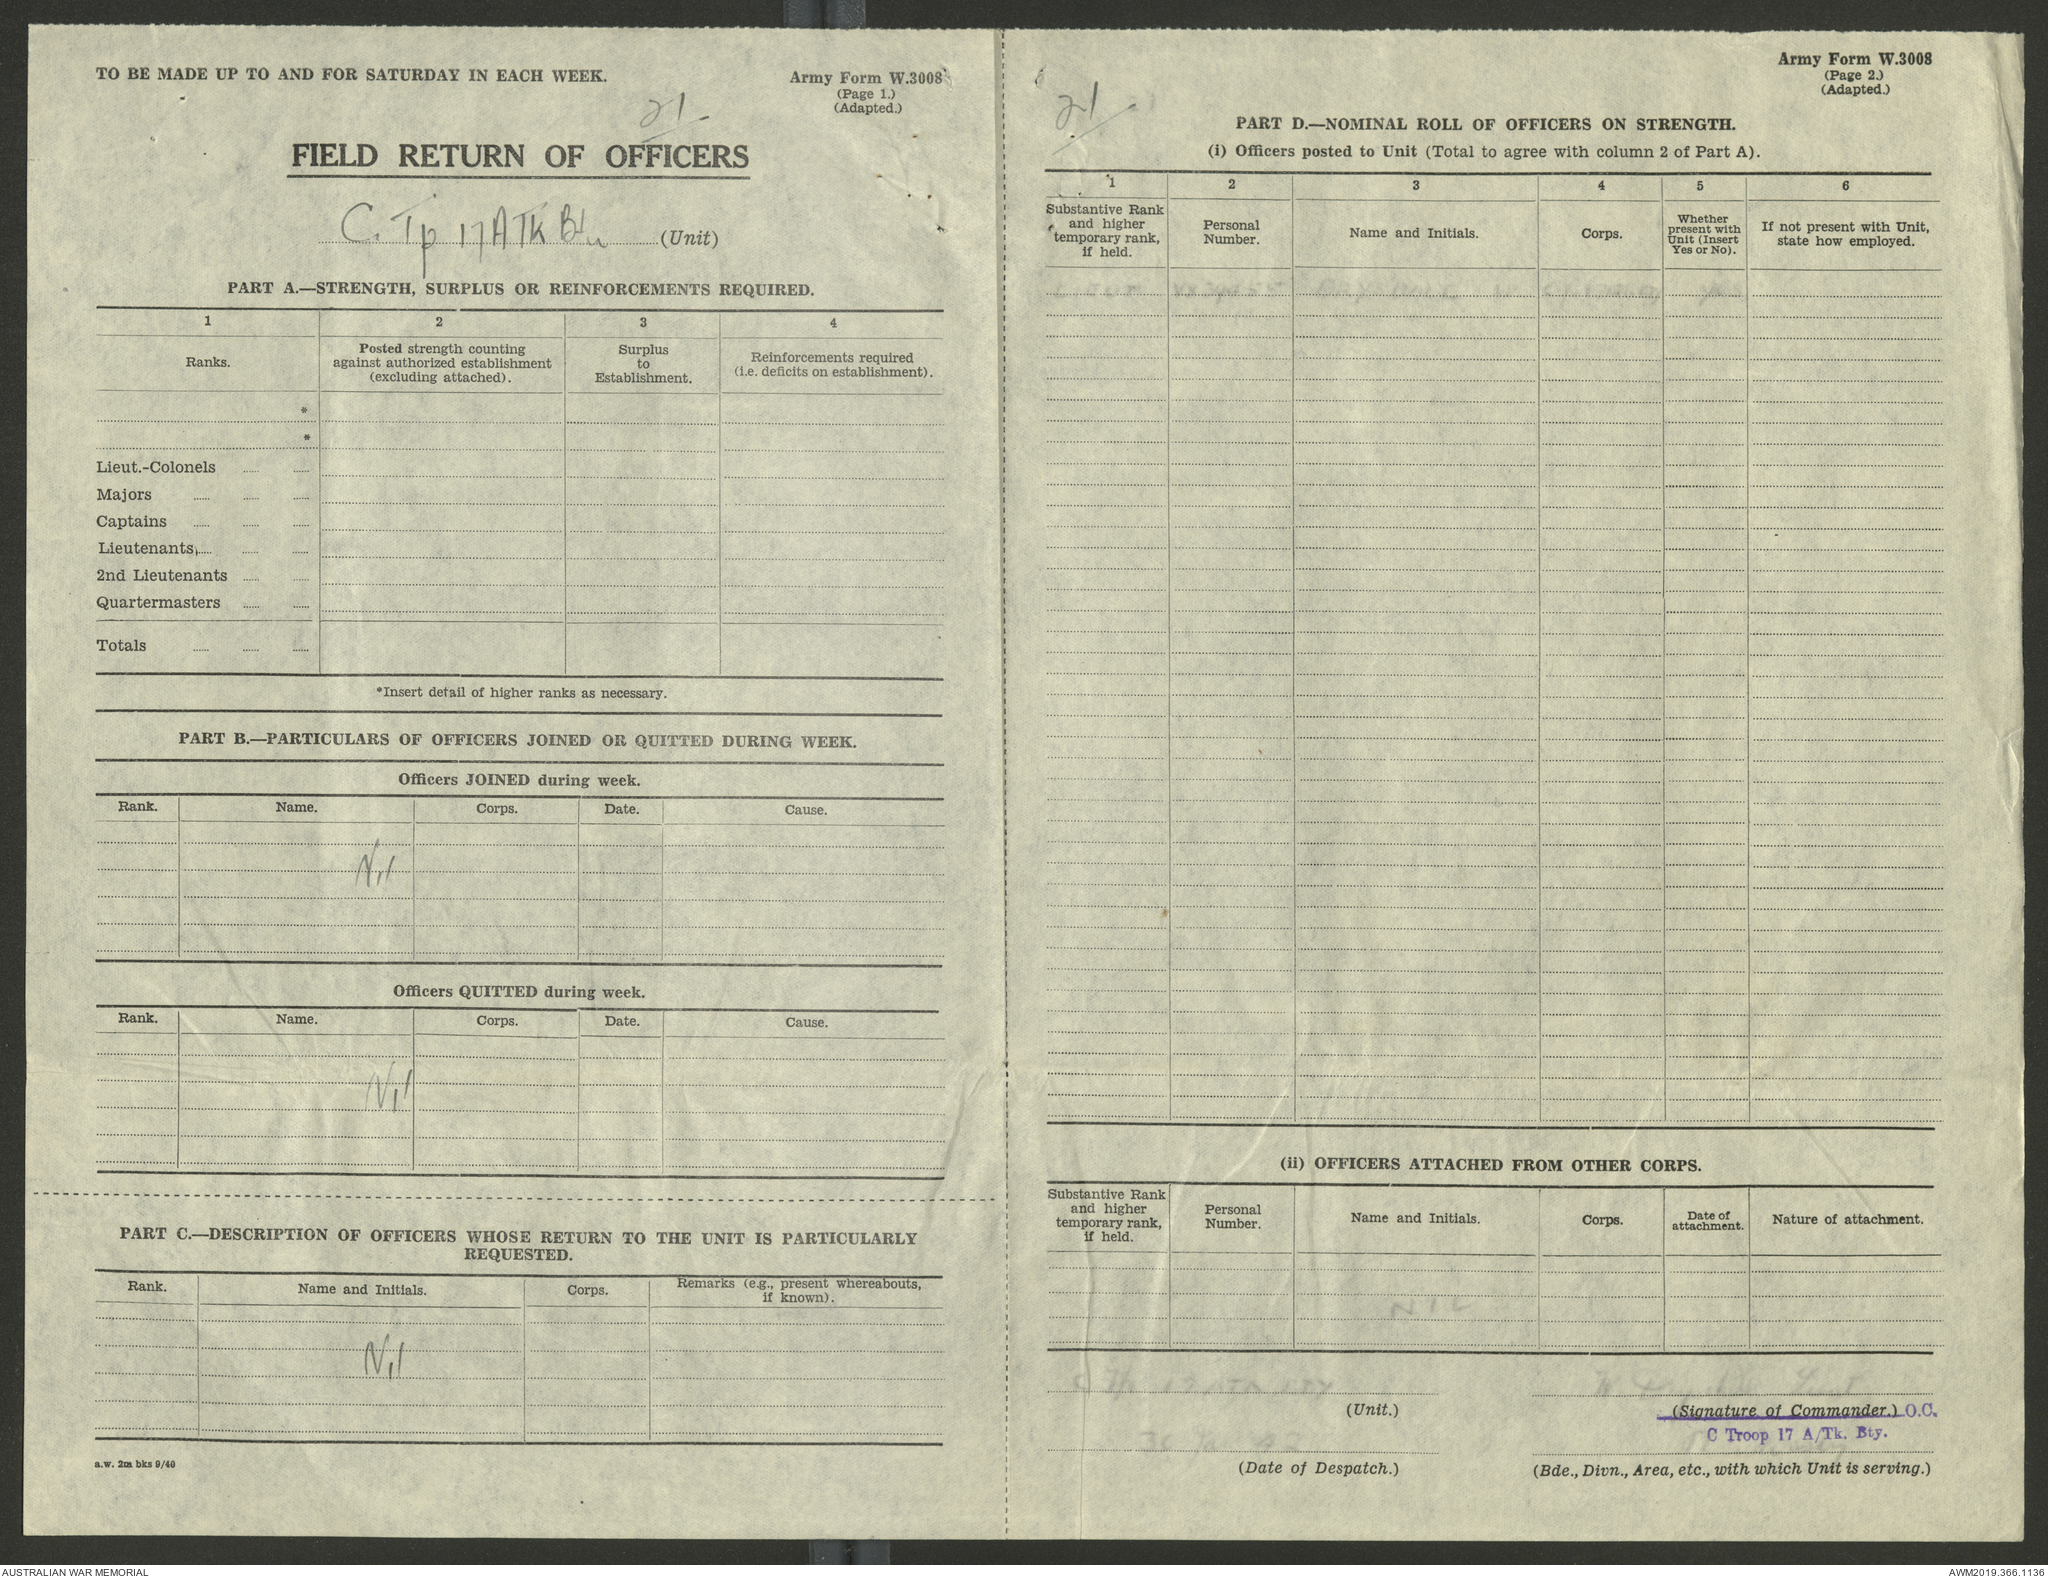 TO BE MADE UP TO AND FOR SATURDAY IN EACH WEEK.
Army Form W.3008
(Page 1.)
(Adapted.)
21
FIELD RETURN OF OFFICERS
C. Tp 17 A Tk Bty (Unit)
PART A.—STRENGTH, SURPLUS OR REINFORCEMENTS REQUIRED.
1 2 3 4
Ranks.
Posted strength counting
against authorized establishment
(excluding attached).
Surplus
to
Establishment.
Reinforcements required
(i.e. deficits on establishment).
*
*
Lieut.-Colonels
Majors
Captains
Lieutenants
2nd Lieutenants
Quartermasters
Totals
*Insert detail of higher ranks as necessary.
PART B.—PARTICULARS OF OFFICERS JOINED OR QUITTED DURING WEEK.
Officers JOINED during week.
Rank. Name. Corps. Date. Cause.
Nil
Officers QUITTED during week.
Rank. Name. Corps. Date. Cause.
Nil
PART C.—DESCRIPTION OF OFFICERS WHOSE RETURN TO THE UNIT IS PARTICULARLY
REQUESTED.
Rank. Name and Initials. Corps.
Remarks (e.g., present whereabouts,
if known).
Nil
a.w. 2m bks 9/40
Army Form W.3008
(Page 2.)
(Adapted.)
21
PART D.—NOMINAL ROLL OF OFFICERS ON STRENGTH.
(i) Officers posted to Unit (Total to agree with column 2 of Part A).
1 2 3 4 5 6
Substantive Rank
and higher
temporary rank,
if held.
Personal
Number.
Name and Initials.
Corps.
Whether
present with
Unit (Insert
Yes or No).
If not present with Unit,
state how employed.
Yes
(ii) OFFICERS ATTACHED FROM OTHER CORPS.
Substantive Rank
and higher
temporary rank,
if held.
Personal
Number.
Name and Initials.
Corps.
Date of
attachment.
Nature of attachment.
NIL
C Tp 17 ATK BTY
(Unit.)
(Signature of Commander.) O.C.
C Troop 17 A/Tk. Bty.
(Date of Despatch.)
(Bde., Divn., Area, etc., with which Unit is serving.)
AUSTRALIAN WAR MEMORIAL
AWM2019.366.1136